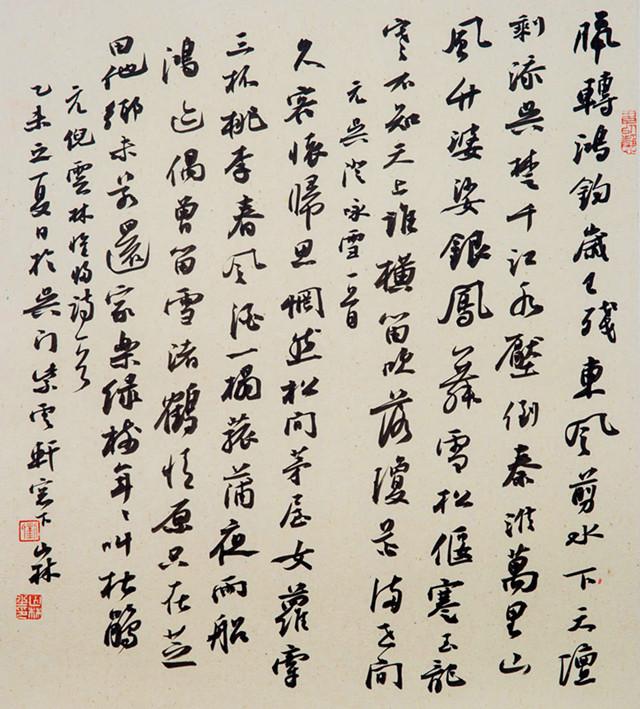 臘轉鴻鈞歲已殘東風剪水下天壇
剩添吳楚千江水壓倒秦淮萬里山
風竹婆娑銀鳳舞雪松偃蹇玉龍
寒不知天上誰橫笛吹落瓊花滿世間
元吳澄詠雪一首
久客懷歸思惘然松間茅屋女蘿牽
三杯桃李春風酒一榻菰蒲夜雨船
鴻迹偶曾留雪渚鶴情原只在芝
田他鄉未若還家樂綠樹年々叫杜鵑
元倪雲林懷歸詩一首
乙未立夏日於吳門紫雲軒窗下山林